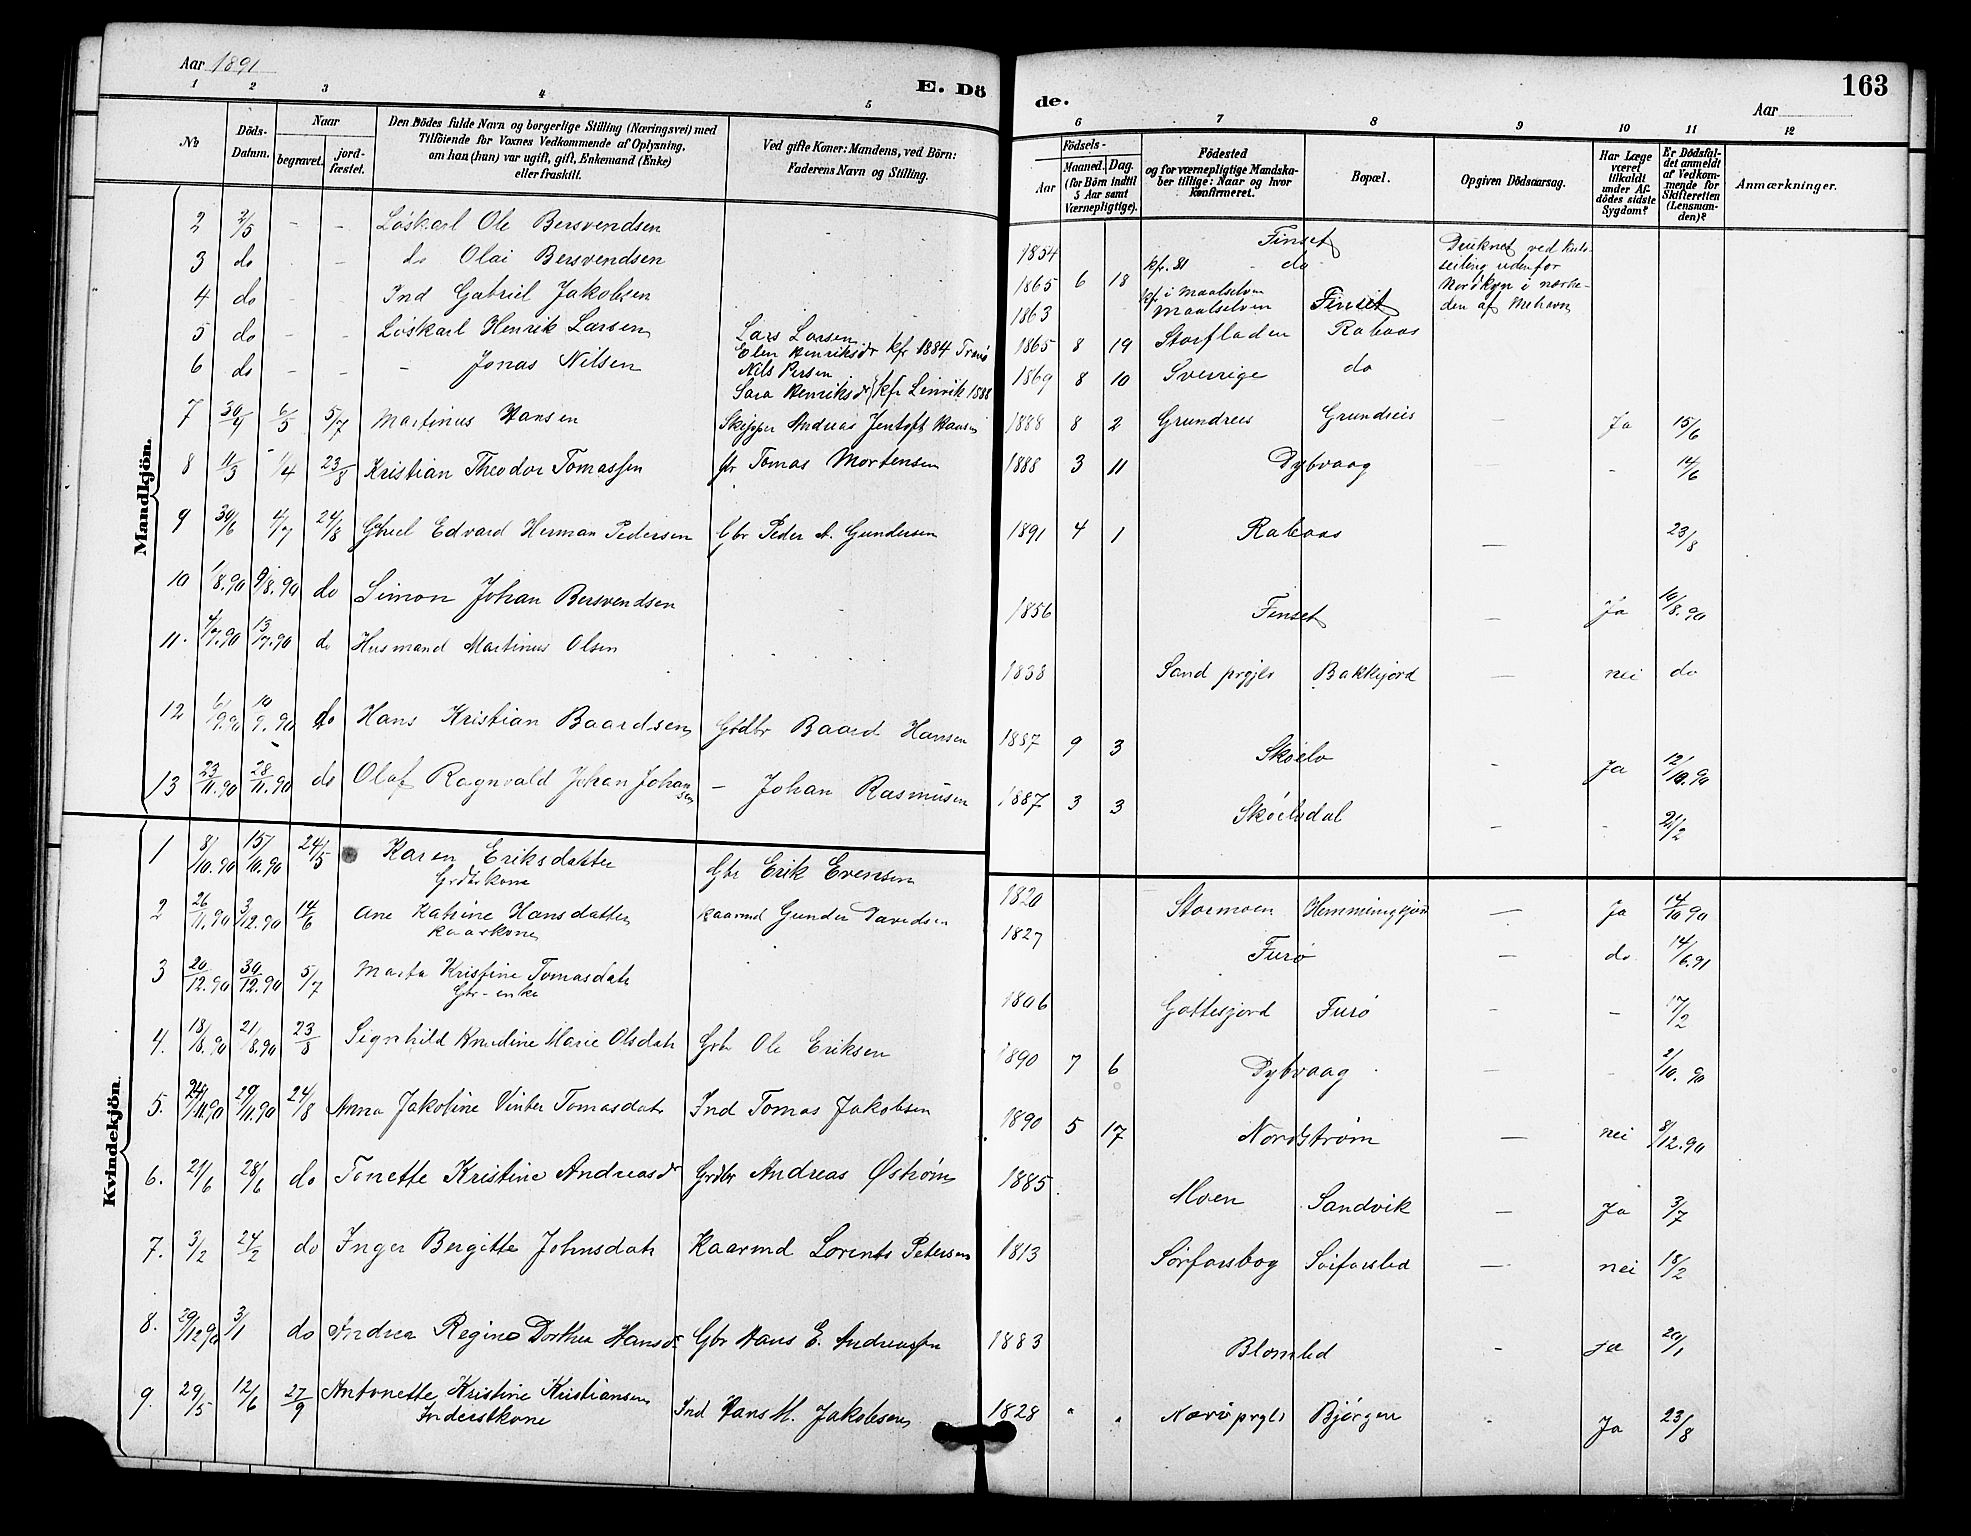 Aar 1891
E. Dö
de.
Aar
163
1 2 3 4 5 6 7 8 9 10 11 12
No
Döds-Datum.
Naar
begravet.
jord-fæstet.
Den Dødes fulde Navn og borgerlige Stilling (Næringsvei) med
Tilføiende for Voxnes Vedkommende af Oplysning,
om han (hun) var ugift, gift, Enkemand (Enke)
eller fraskilt.
Ved gifte Koner: Mandens, ved Börn:
Faderens Navn og Stilling.
Födsels-
Aar
Maaned. Dag.
(for Börn indtil
5 Aar samt
Værnepligtige).
Födested
og for værnepligtige Mandska-
ber tillige: Naar og hvor
konfirmeret.
Bopæl.
Opgiven Dödsaarsag.
Har Læge
været
tilkaldt
under Af-
dödes sidste
Sygdom?
Er Dödsfal-
det anmeldt
af Vedkom-
mende for
Skifteretten
(Lensman-
den)?
Anmærkninger.
Mandkjön.
2 2/5 - - Løskarl Ole Bersvendsen 1854 Finset Druknet ved Kul-
3 do - - do Olai Bersvendsen 1865 6 18 kfr. 81 do seiling udenfor
4 do - - Ind Gabriel Jakobsen 1863 kf. i Maalselven Maalselven Finset Nordkyn i nærhe-
den af Mehavn
5 do - - Løskarl Henrik Larsen Lars Larsen 1865 8 19 Storfladen Rabaas
Elen Henriksdr kfr 1884 Tranø
6 do - - - Jonas Nilsen Nils Persen 1869 8 10 Sverrige do
Sara Henriksdr kfr Lenvik 1888
7 30/4 6/5 5/7 Martinus Hansen Skipper Andreas Jentoft Hansen 1888 8 2 Grundreis Grundreis - Ja 15/6
8 11/3 1/4 23/8 Kristian Theodor Tomassen Gbr Tomas Mortensen 1888 3 11 Dybvaag - - 14/6
9 30/6 4/7 24/8 Edvard Herman Pedersen Gbr Peder A. Gundersen 1891 4 1 Rabaas - 23/8
10 1/8.90 9/8.90 do Simon Johan Bersvendsen 1856 Finset - Ja 10/8.90
11. 4/7.90 13/7.90 do Husmand Martinus Olsen 1838 Sand prgjld Bakkejord - nei do
12 6/9.90 10/9.90 do Hans Kristian Baardsen Grdbr Baard Hansen 1887 9 3 Skøelv - Ja 12/10.90
13 23/11.90 28/11.90 do Olaf Ragnvald Johan Johansen - Johan Rasmusen 1887 3 3 Skøelvdal - - 21/2
Kvindekjön.
1 8/10.90 15/10.90 24/5 Karen Eriksdatter Gbr Erik Evensen 1820 Stormoen Hemmingsjord - Ja 14/10 90
Grdbrkone
2 26/11.90 3/12.90 14/6 Ane Katrine Hansdatter Kaarmd Gunder Davidsen 1827 Furø - do 14/6.91
Kaarkone
3 20/12.90 30/12.90 5/7 Marta Kristine Tomasdatr 1806 Gottesjord Furø - - 17/2
Gbr-enke
4. 18/8.90 21/8.90 23/8 Signhild Knudine Marie Olsdatr Gbr Ole Eriksen 1890 7 6 Dybvaag - - 2/10.90
5. 24/11.90 29/11.90 24/8 Anna Jakobine Vinter Tomasdatr Ind Tomas Jakobsen 1890 5 17 Nordstrøm - nei 8/12.90
6. 21/6 28/6 do Tonette Kristine Andreasdr Grdbr Andreas Østrøm 1885 Moen Sandvik - Ja 3/7
7. 3/2 24/2 do Inger Bergitte Johnsdatr Kaarmd Lorents Petersen 1813 Sørforsbog Sørforsled - nei 18/2
8. 29/12 90 3/1 do Indrea Regine Dorthea Hansdr Gbr Hans E. Andreassen 1883 Blomlid - Ja 20/1
9. 29/5 12/6 27/9 Antonette Kristine Kristiansen Ind Hans M. Jakobsen 1828 " " Nærø prgld Bjørgen - Ja 23/8
Inderstkone